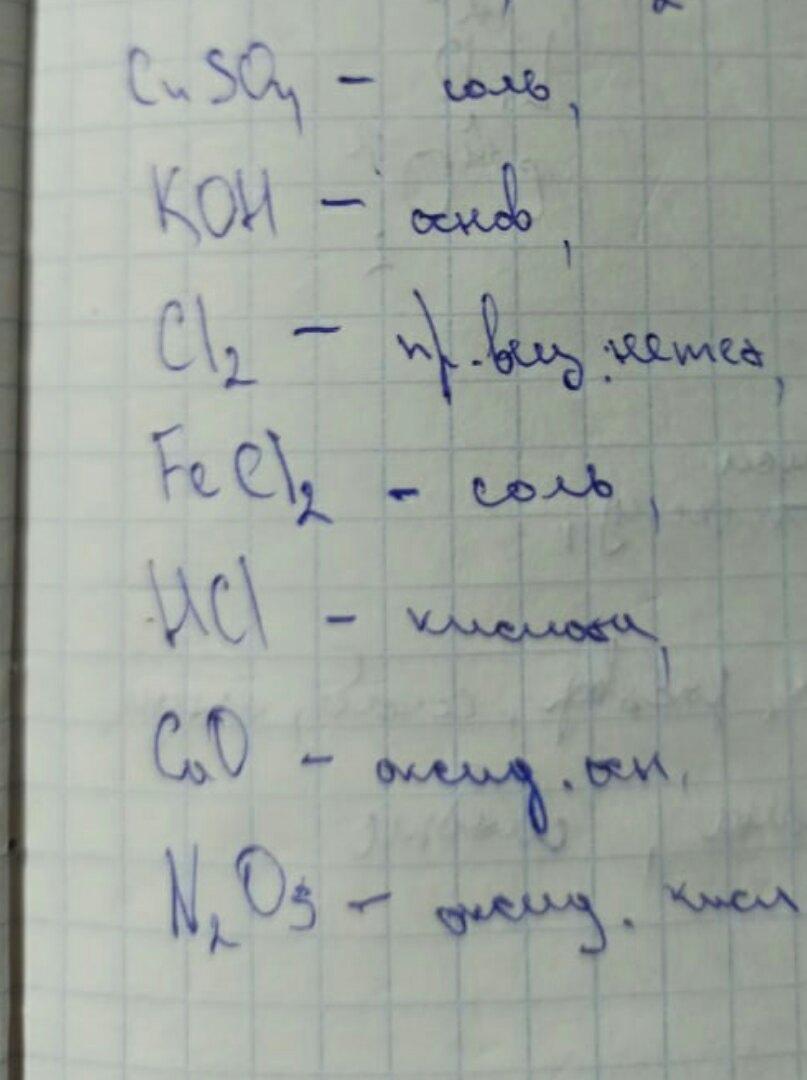 CuSO4 - соль,
KOH - основ,
Cl2 - пр. вещ. немет,
FeCl2 - соль,
HCl - кислота,
CaO - оксид. осн.
N2O5 - оксид. кисл